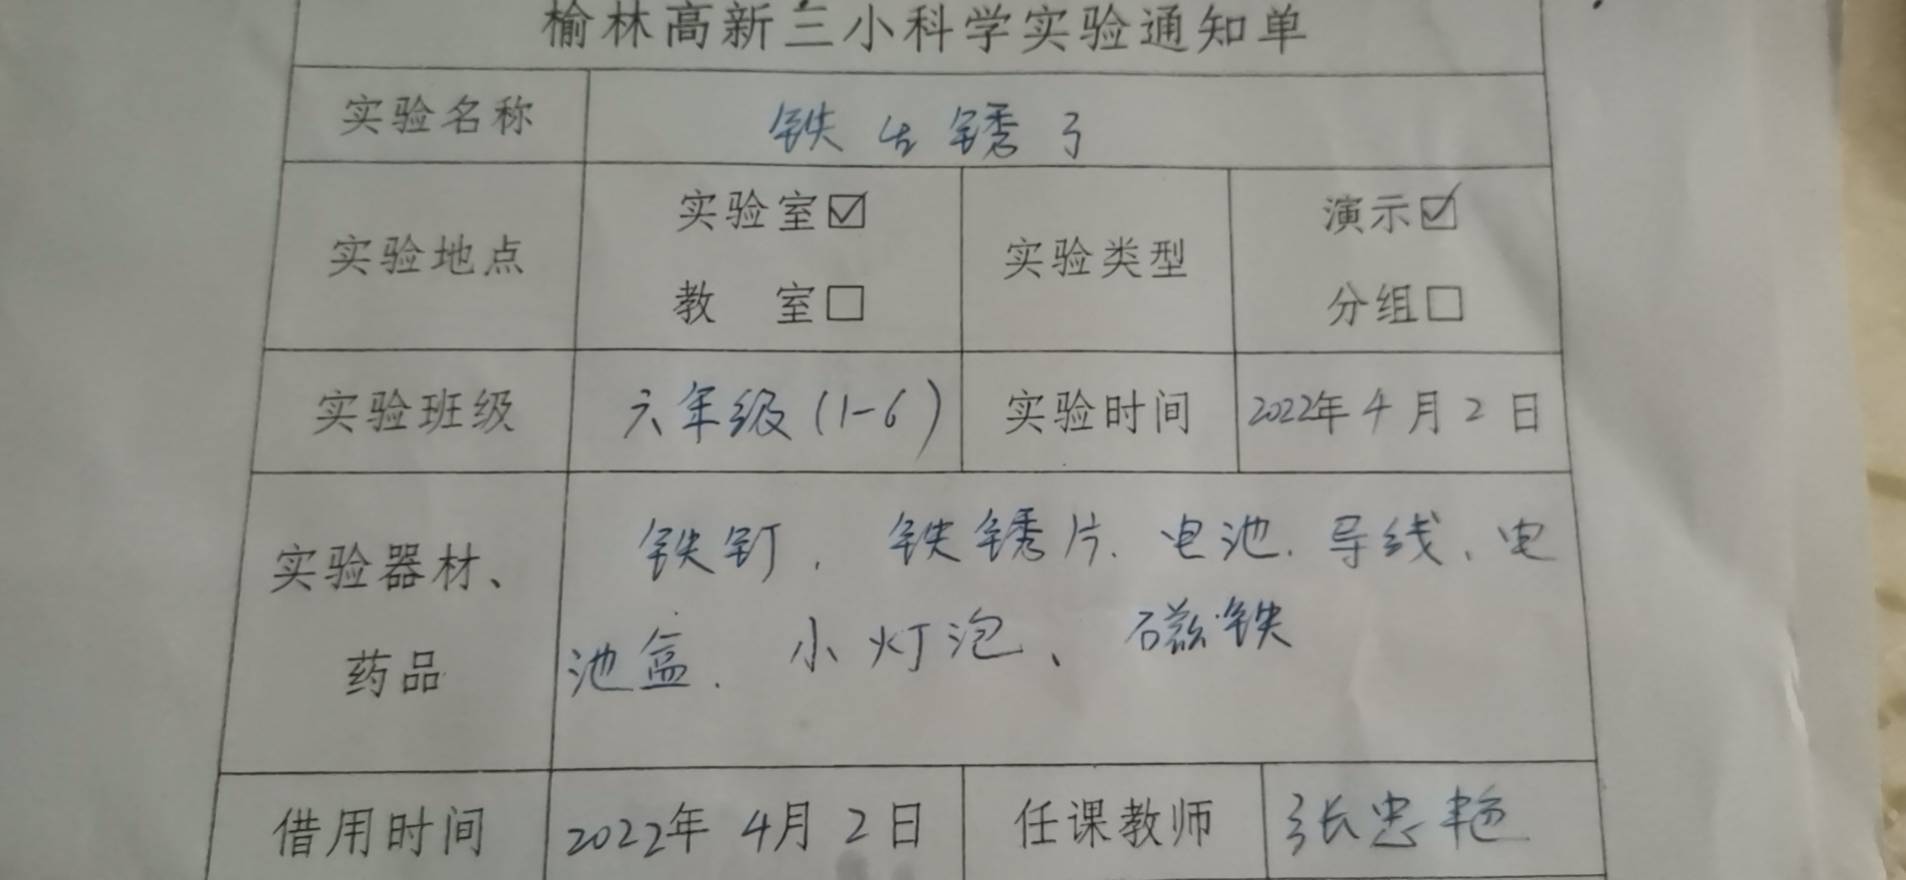 榆林高新三小科学实验通知单
实验名称 铁生锈了
实验地点 实验室☑ 教 室□ 实验类型 演示☑ 分组□
实验班级 六年级(1-6) 实验时间 2022年4月2日
实验器材、药品 铁钉、铁锈片、电池、导线、电
池盒、小灯泡、磁铁
借用时间 2022年4月2日 任课教师 张忠艳